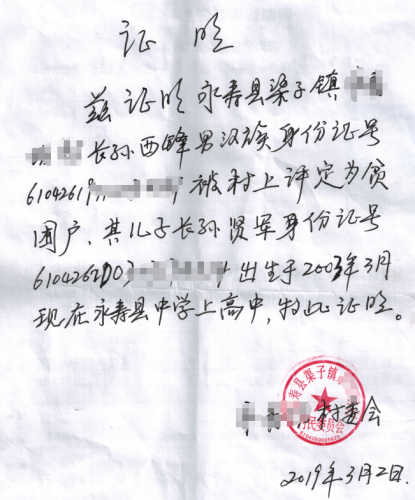 证明
兹证明永寿县渠子镇
长孙西锋男汉族身份证号
6104261 被村上评定为贫
困户，其儿子长孙贤军身份证号
610426200 出生于2003年3月
现在永寿县中学上高中，特此证明。
寿县渠子镇
民委员会
村委会
2019年3月2日.